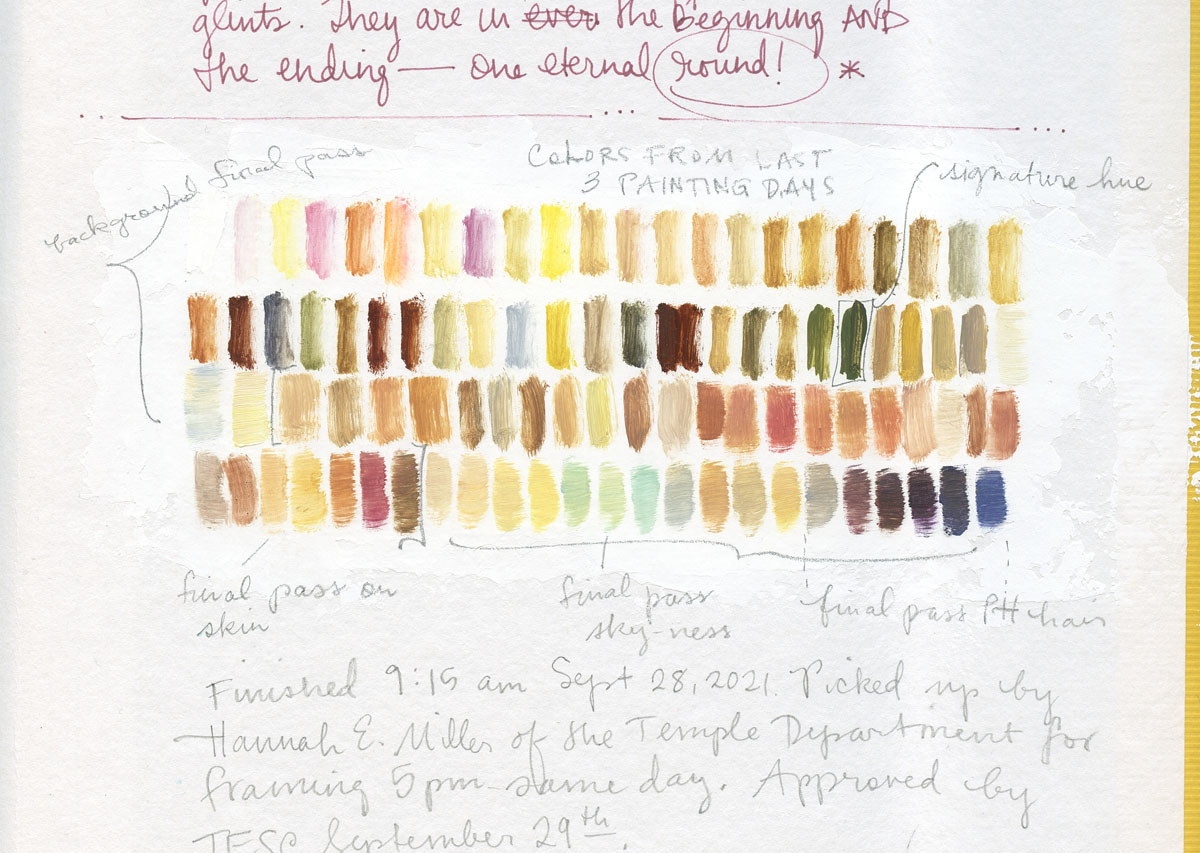 glints. They are in ever the Beginning AND
the ending — one eternal round! *
background final pass
COLORS FROM LAST
3 PAINTING DAYS
signature hue
final pass on
skin
final pass
sky-ness
final pass PH hair
Finished 9:15 am Sept 28, 2021. Picked up by
Hannah E. Miller of the Temple Department for
framing 5pm same day. Approved by
September 29th.